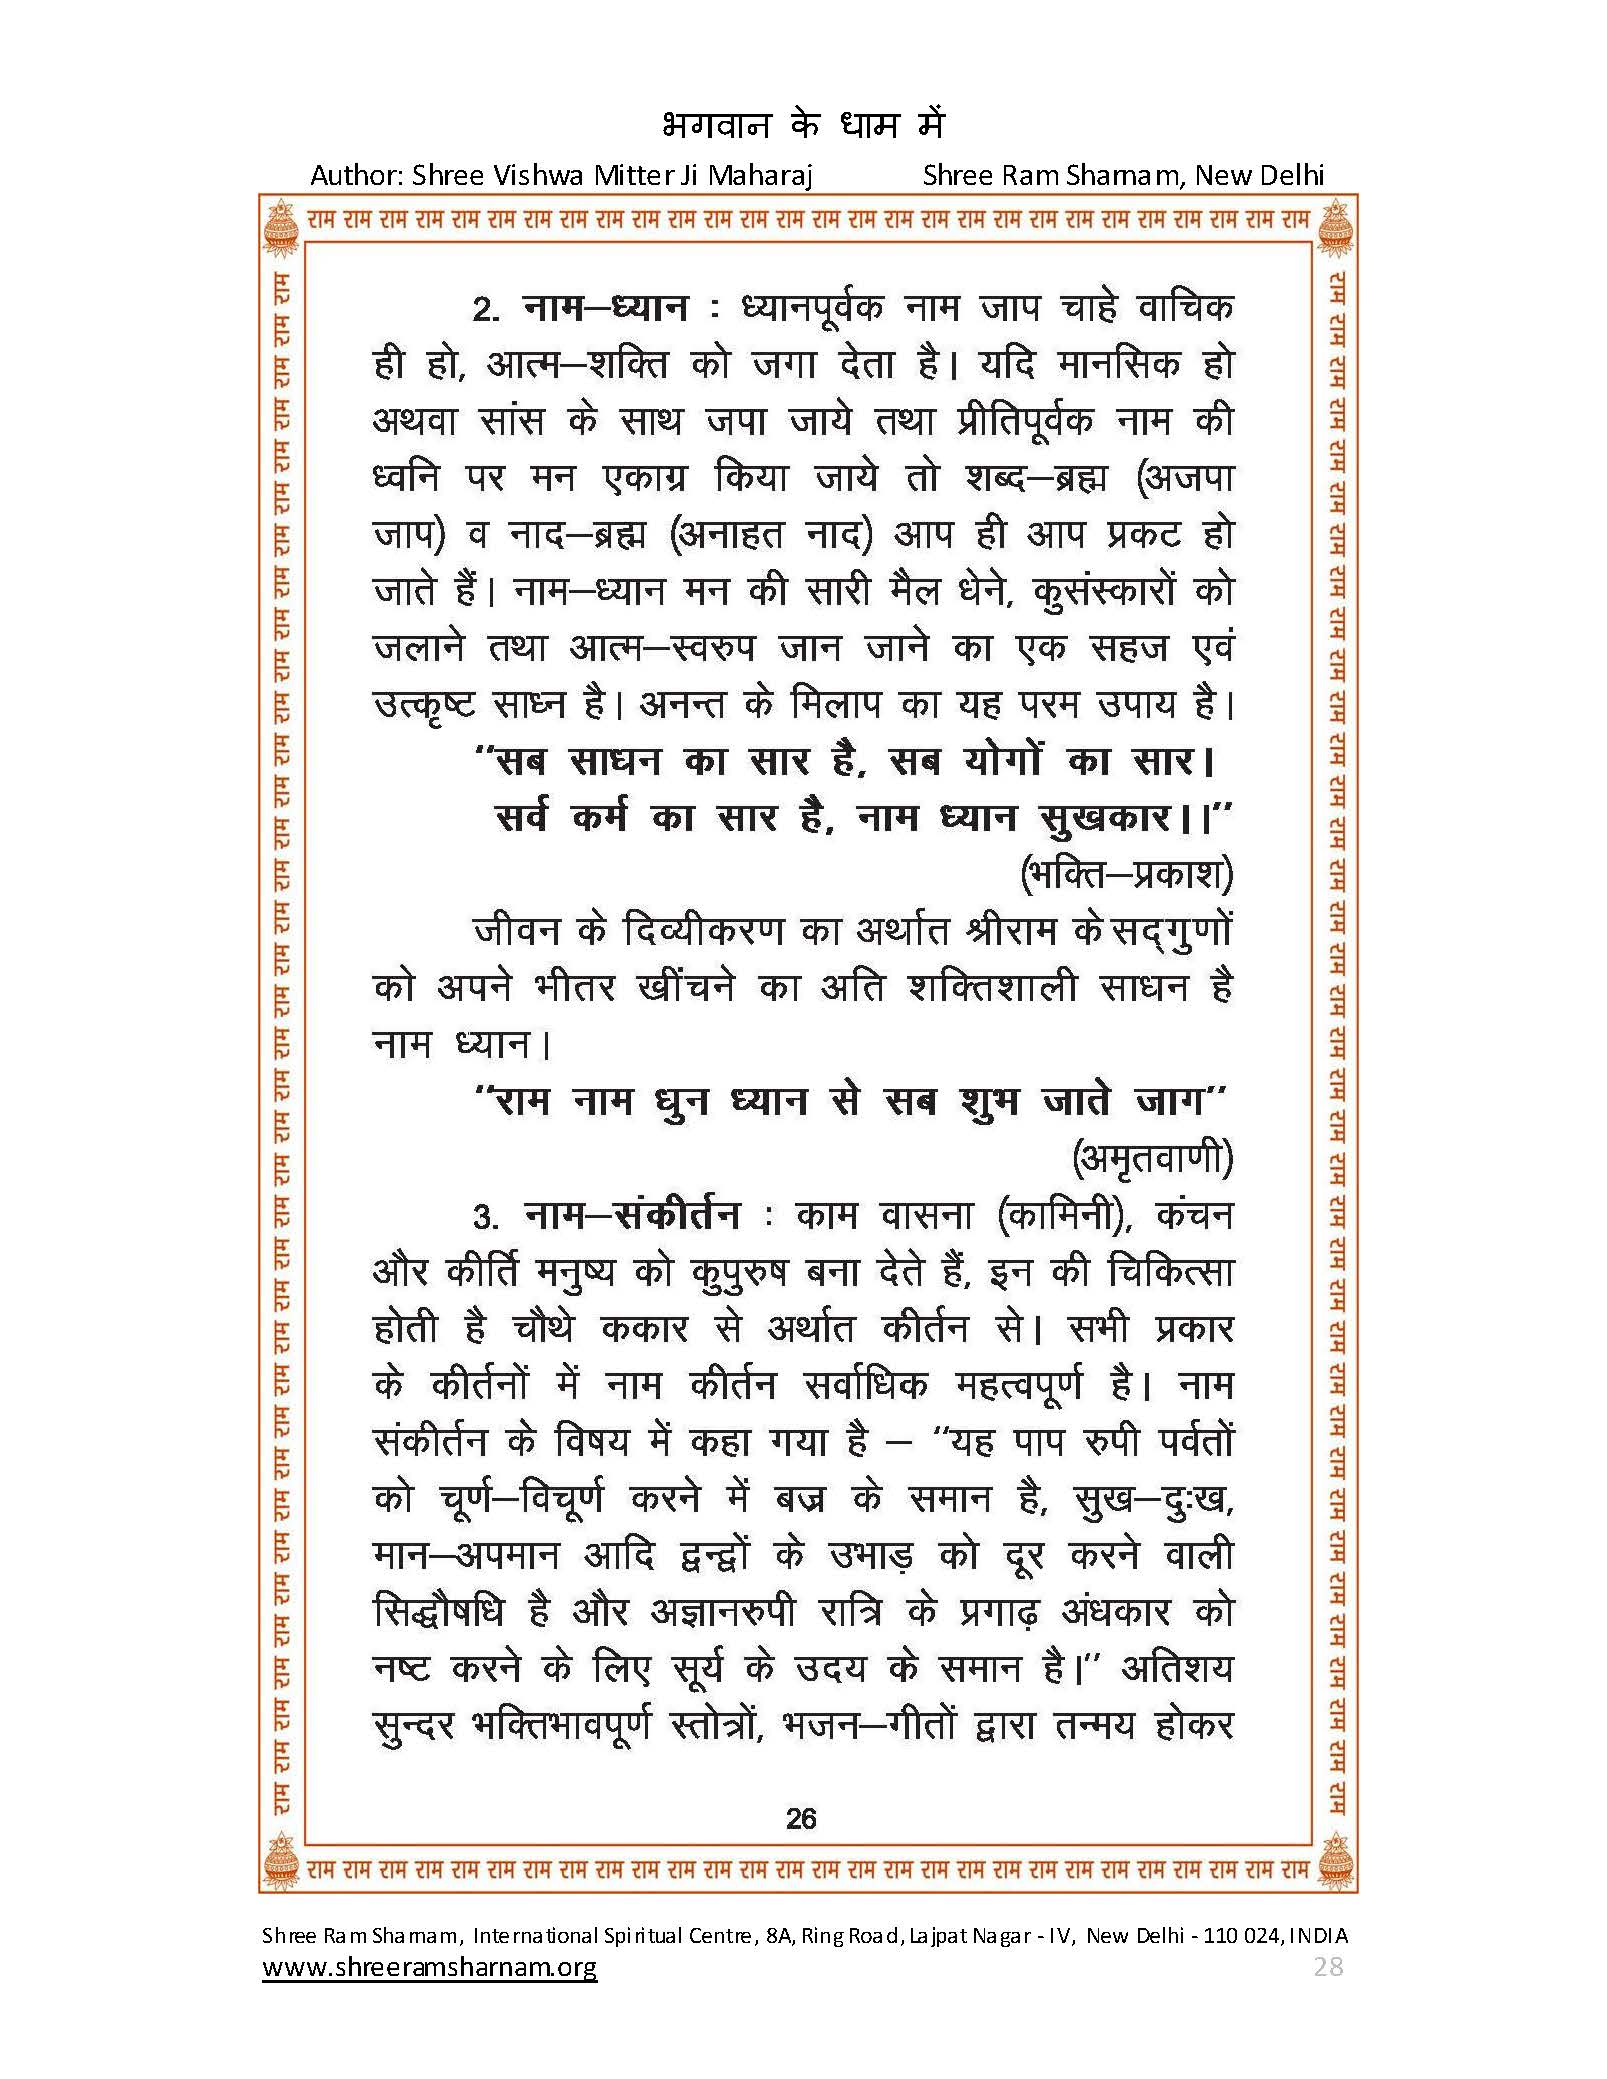 भगवान के धाम में
Author: Shree Vishwa Mitter Ji Maharaj Shree Ram Sharnam, New Delhi
राम राम राम राम राम राम राम राम राम राम राम राम राम राम राम राम राम राम राम राम राम राम राम राम राम राम राम राम
2. नाम–ध्यान : ध्यानपूर्वक नाम जाप चाहे वाचिक
ही हो, आत्म–शक्ति को जगा देता है। यदि मानसिक हो
अथवा सांस के साथ जपा जाये तथा प्रीतिपूर्वक नाम की
ध्वनि पर मन एकाग्र किया जाये तो शब्द–ब्रह्म (अजपा
जाप) व नाद–ब्रह्म (अनाहत नाद) आप ही आप प्रकट हो
जाते हैं। नाम–ध्यान मन की सारी मैल धेने, कुसंस्कारों को
जलाने तथा आत्म–स्वरुप जान जाने का एक सहज एवं
उत्कृष्ट साध्न है। अनन्त के मिलाप का यह परम उपाय है।
“सब साधन का सार है, सब योगों का सार।
सर्व कर्म का सार है, नाम ध्यान सुखकार।।”
(भक्ति–प्रकाश)
जीवन के दिव्यीकरण का अर्थात श्रीराम के सद्गुणों
को अपने भीतर खींचने का अति शक्तिशाली साधन है
नाम ध्यान।
“राम नाम धुन ध्यान से सब शुभ जाते जाग”
(अमृतवाणी)
3. नाम–संकीर्तन : काम वासना (कामिनी), कंचन
और कीर्ति मनुष्य को कुपुरुष बना देते हैं, इन की चिकित्सा
होती है चौथे ककार से अर्थात कीर्तन से। सभी प्रकार
के कीर्तनों में नाम कीर्तन सर्वाधिक महत्वपूर्ण है। नाम
संकीर्तन के विषय में कहा गया है – “यह पाप रुपी पर्वतों
को चूर्ण–विचूर्ण करने में बज्र के समान है, सुख–दुःख,
मान–अपमान आदि द्वन्द्वों के उभाड़ को दूर करने वाली
सिद्धौषधि है और अज्ञानरुपी रात्रि के प्रगाढ़ अंधकार को
नष्ट करने के लिए सूर्य के उदय के समान है।” अतिशय
सुन्दर भक्तिभावपूर्ण स्तोत्रों, भजन–गीतों द्वारा तन्मय होकर
26
राम राम राम राम राम राम राम राम राम राम राम राम राम राम राम राम राम राम राम राम राम राम राम राम राम राम राम राम
Shree Ram Sharnam, International Spiritual Centre, 8A, Ring Road, Lajpat Nagar - IV, New Delhi - 110 024, INDIA
www.shreeramsharnam.org 28